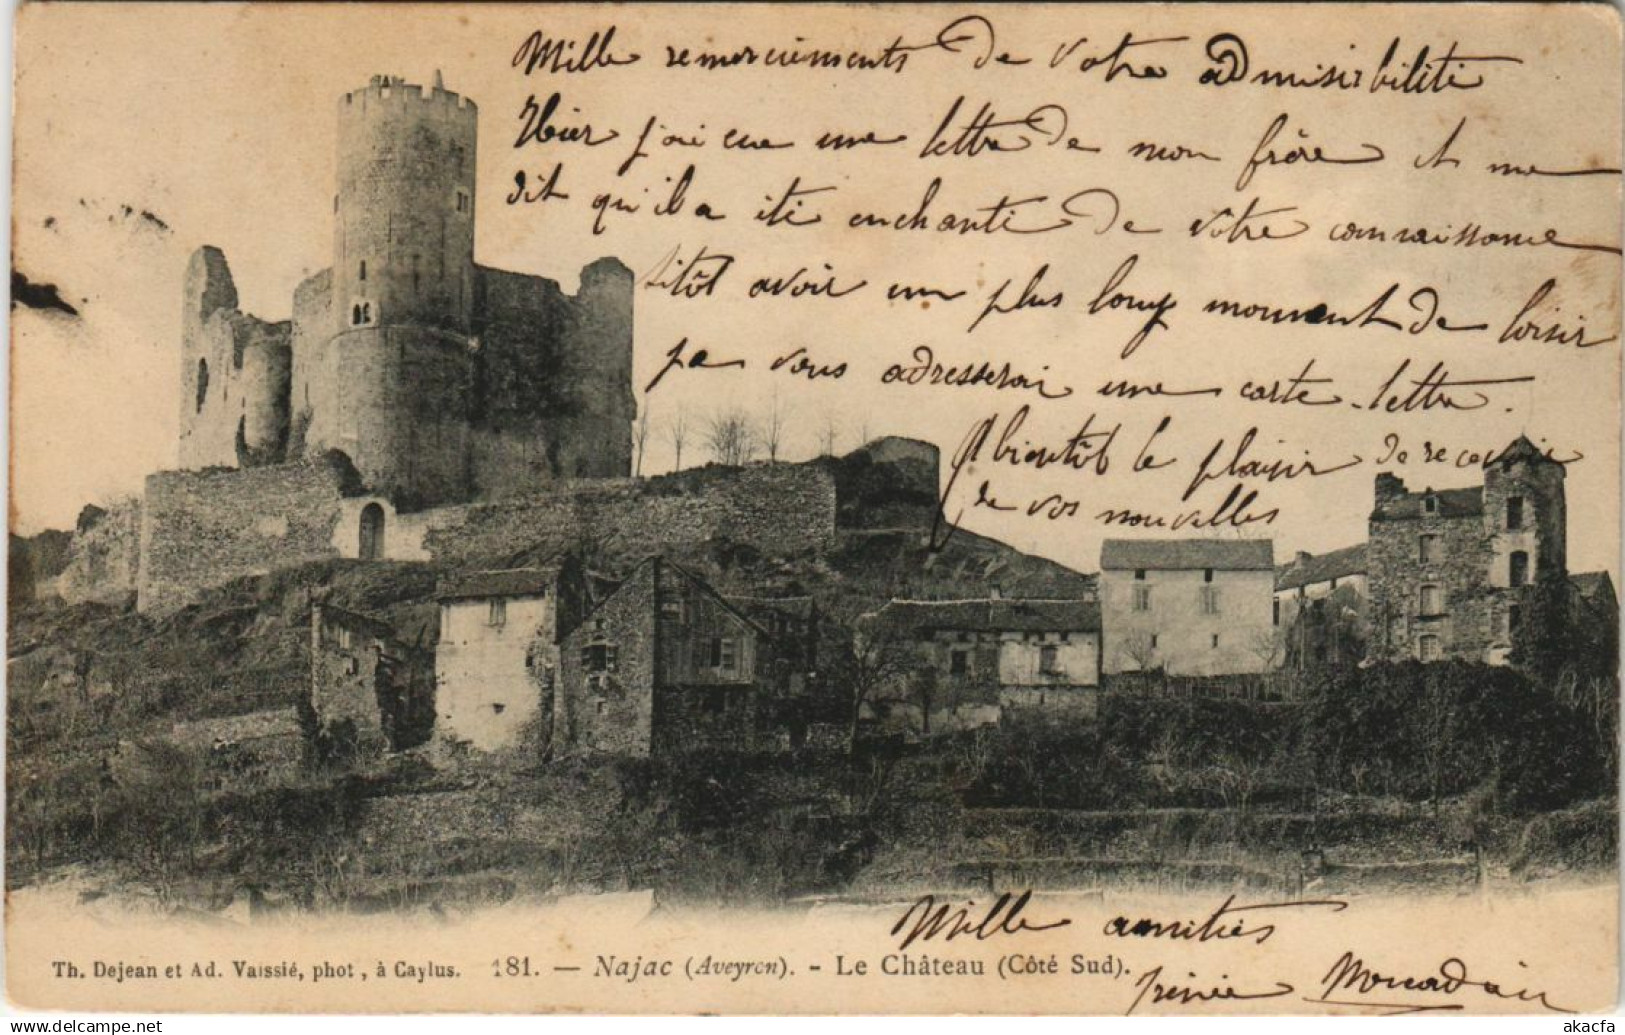 Mille remerciements de votre admisirbilité
Hier j'ai eue une lettre de mon frère et me
dit qu'il a iti enchanti de vôtre connaissance
sitôt avoir un plus long moument de loisir
je vous adresserai une carte-lettre.
A bientôt le plaisir de recevoir
de vos nouvelles
Mille amitiés
Irénée
Th. Dejean et Ad. Vaissié, phot, à Caylus. 181. — Najac (Aveyron). - Le Château (Côté Sud).
akacfa